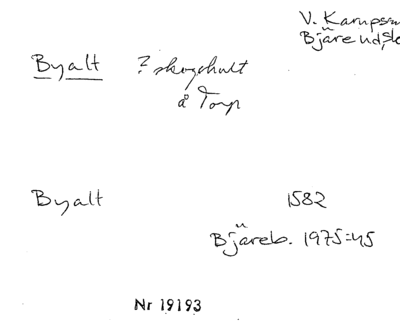 V. Karups
Bjäre ud,
Byalt ? skogshult
å Torp
Byalt 1582
Bjäreb. 1975:45
Nr 19193